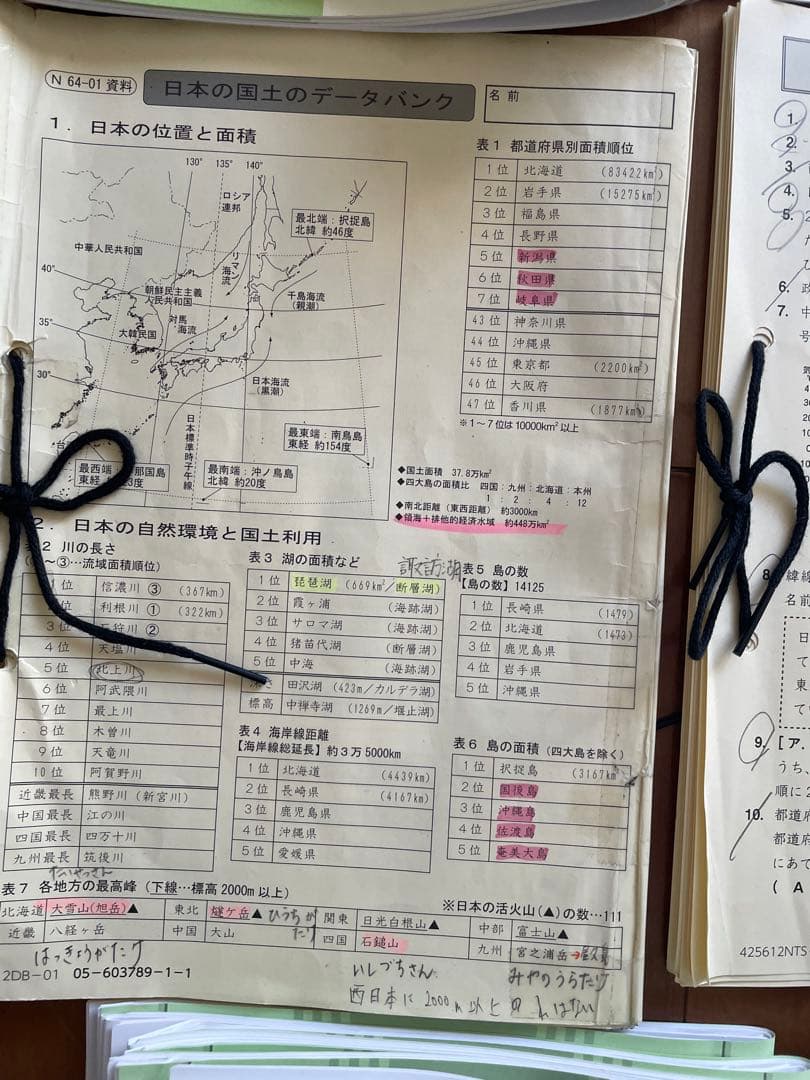 N 64-01 資料
日本の国土のデータバンク
名前
1．日本の位置と面積
130° 135° 140°
ロシア
連邦
最北端：択捉島
北緯 約46度
中華人民共和国
リマ
海流
40°
朝鮮民主主義
人民共和国
千島海流
(親潮)
35°
対馬
海流
大韓民国
30°
日本海流
(黒潮)
日本標準時子午線
最東端：南鳥島
東経 約154度
最西端
那国島
東経
3度
最南端：沖ノ鳥島
北緯 約20度
表1 都道府県別面積順位
1位 北海道 (83422km²)
2位 岩手県 (15275km²)
3位 福島県
4位 長野県
5位 新潟県
6位 秋田県
7位 岐阜県
43位 神奈川県
44位 沖縄県
45位 東京都 (2200km²)
46位 大阪府
47位 香川県 (1877km²)
※1～7位は10000km²以上
◆国土面積 37.8万km²
◆四大島の面積比 四国：九州：北海道：本州
1：2：4：12
◆南北距離（東西距離）約3000km
◆領海＋排他的経済水域 約448万km²
2．日本の自然環境と国土利用
表2 川の長さ
～③…流域面積順位)
1位 信濃川 ③ (367km)
2位 利根川 ① (322km)
3位 石狩川 ②
4位 天塩川
5位 北上川
6位 阿武隈川
7位 最上川
8位 木曽川
9位 天竜川
10位 阿賀野川
近畿最長 熊野川（新宮川）
中国最長 江の川
四国最長 四万十川
九州最長 筑後川
表3 湖の面積など
諏訪湖
1位 琵琶湖 (669km²／断層湖)
2位 霞ヶ浦 (海跡湖)
3位 サロマ湖 (海跡湖)
4位 猪苗代湖 (断層湖)
5位 中海 (海跡湖)
深さ 田沢湖 (423m／カルデラ湖)
標高 中禅寺湖 (1269m／堰止湖)
表4 海岸線距離
【海岸線総延長】約3万5000km
1位 北海道 (4439km)
2位 長崎県 (4167km)
3位 鹿児島県
4位 沖縄県
5位 愛媛県
表5 島の数
【島の数】14125
1位 長崎県 (1479)
2位 北海道 (1473)
3位 鹿児島県
4位 岩手県
5位 沖縄県
表6 島の面積（四大島を除く）
1位 択捉島 (3167km²)
2位 国後島
3位 沖縄島
4位 佐渡島
5位 奄美大島
たいせつさん
表7 各地方の最高峰（下線…標高2000m以上）
※日本の活火山(▲)の数…111
北海道 大雪山(旭岳)▲ 東北 燧ケ岳▲ ひうちがたけ 関東 日光白根山▲ 中部 富士山▲
近畿 八経ヶ岳 中国 大山 四国 石鎚山 九州 宮之浦岳→屋久島
はっきょうがたけ
いしづちさん
みやのうらだけ
西日本に2000m以上
はない
2DB-01 05-603789-1-1
1.
2.
3.
4.
5.
6.
7.
8
9.
[ア.
うち、
順に2
10. 都道府
都道府
にあて
( A
425612NTS